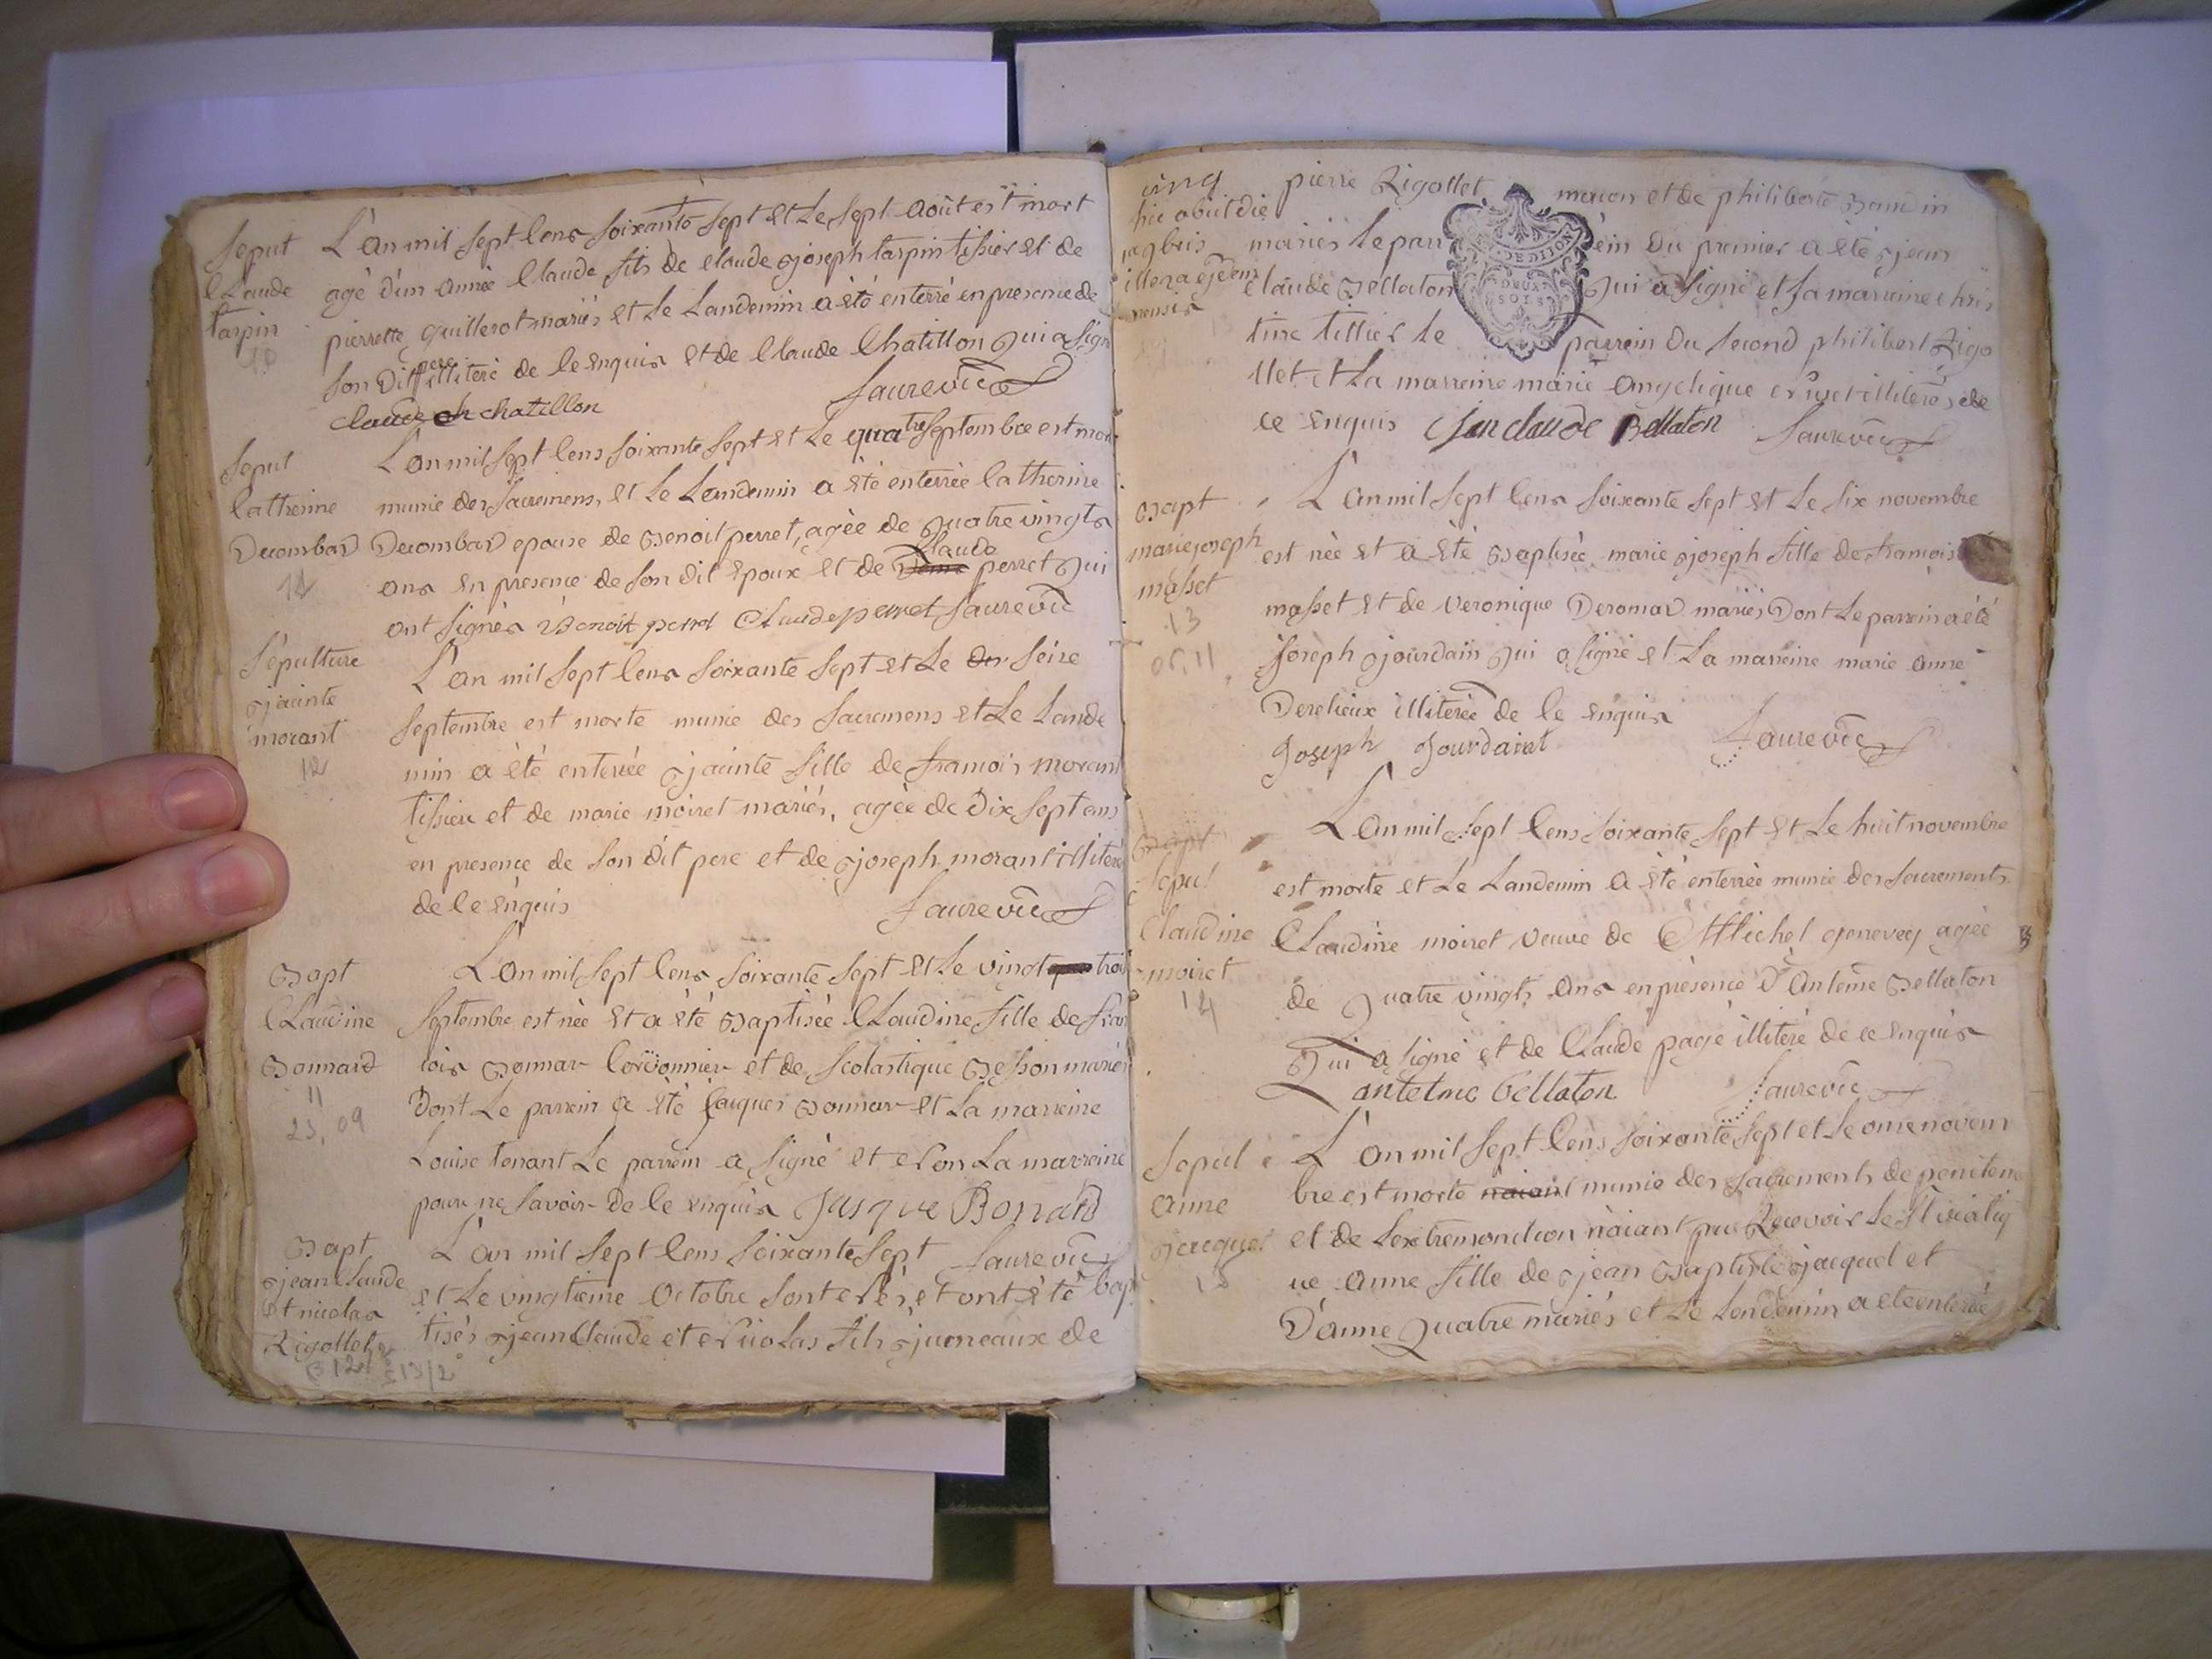 Seput
Claude
tarpin
10
L'an mil sept cens soixante sept et le sept août est mort
agé d'un année Claude fils de claude joseph tarpin tissier et de
pierrette guillerot mariés et le landemin a été enterré en presence de
son dit pere illiteré de ce enquis et de Claude Chatillon qui a signé
claude ch chatillon faure vic
Seput
Catherine
Decombad
11
L'an mil sept cens soixante sept et le quatre septembre est morte
munie des sacremens, et le landemin a été enterrée Catherine
Decombad epouse de Benoit perret, agée de quatre vingts
ans en presence de son dit epoux et de Claude perret qui
ont signés Benoit perret Claude perret faure vic
Sepulture
jacinte
morant
12
L'an mil sept cens soixante sept et le seize
septembre est morte munie des sacremens et le lande
min a été enterrée jacinte fille de francois morant
tissier et de marie moiret mariés, agée de dix sept ans
en presence de son dit pere et de joseph morant illiteré
de ce enquis faure vic
Bapt
Claudine
Bonnard
11
23, 09
L'an mil sept cens soixante sept et le vingt trois
septembre est née et a été Baptisée Claudine fille de fran
cois Bonnar cordonnier et de scolastique Besson mariés
Dont le parrein a été jacques Bonnar et la marreine
Louise tenant le parrein a signé et non la marreine
pour ne savoir de ce enquis Jasque Bonard
Bapt
jean Claude
et nicolas
Rigollet
L'an mil sept cens soixante sept faure vic
et le vingtieme octobre sont nés, et ont été bap
tisés jean Claude et nicolas fils jumeaux de
hic obiit die
pierre Rigollet macon et de philiberte
mariés le parrein du premier a été jean
claude Bellaton qui a signé et sa marreine chris
tine tillier le parrein du second philibert Rigo
llet et la marreine marie angelique illiterés de
ce enquis jean claude Bellaton faure vic
Bapt
marie joseph
masset
13
06, 11
L'an mil sept cens soixante sept et le six novembre
est née et a été Baptisée marie joseph fille de francois
masset et de veronique Deromad mariés Dont le parrein a été
joseph jourdain qui a signé et la marreine marie anne
Derelieux illiterée de ce enquis
Joseph Jourdainet faure vic
Bapt
Sepul
Claudine
moiret
14
L'an mil sept cens soixante sept et le huit novembre
est morte et le landemin a été enterrée munie des sacrements
Claudine moiret veuve de Michel genevey agée
de quatre vingts ans en presence d'anteme Bellaton
qui a signé et de Claude pagé illiteré de ce enquis
antelme bellaton faure vic
Sepul
anne
jacquet
15
L'an mil sept cens soixante sept et le onze novem
bre est morte naiant munie des sacrements de penitence
et de l'extremonction n'aiant pu recevoir le st viatiq
ue anne fille de jean Baptiste jacquet et
d'anne quatre mariés et le lendemin a été enterrée